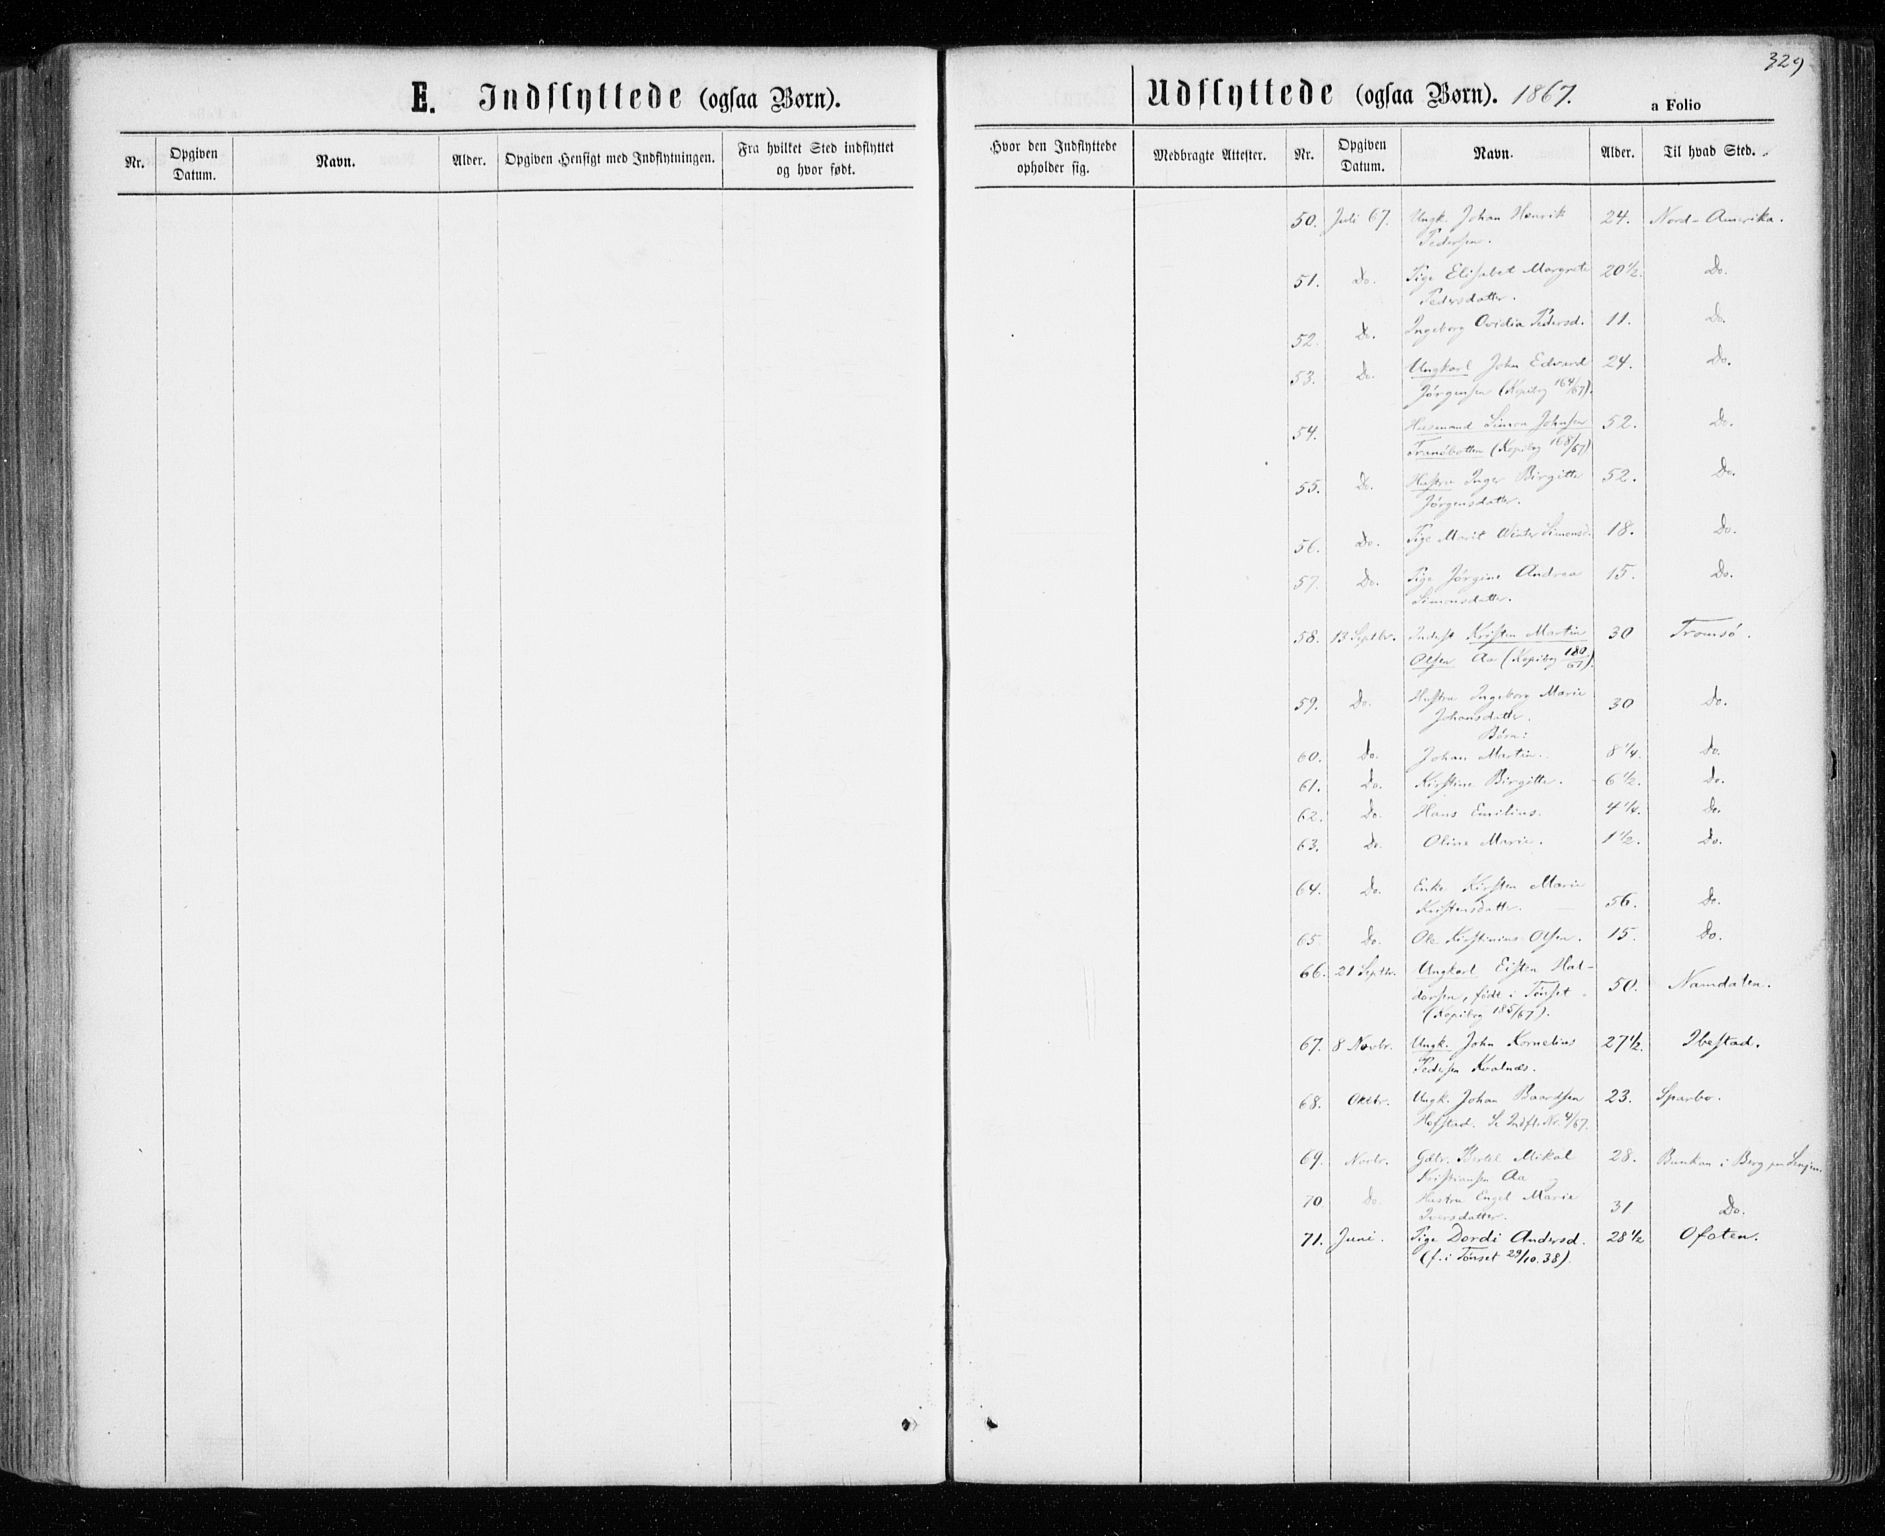 329
E. Indflyttede (ogsaa Børn).
Udflyttede (ogsaa Børn). 1867.
a Folio
Nr.
Opgiven Datum.
Navn.
Alder.
Opgiven Hensigt med Indflytningen.
Fra hvilket Sted indflyttet
og hvor født.
Hvor den Indflyttede
opholder sig.
Medbragte Attester.
Nr.
Opgiven Datum.
Navn.
Alder.
Til hvad Sted.
50. Juli 67. Ungk. Johan Henrik 24. Nord-Amerika.
Pedersen.
51. Do. Pige Elisabet Margrete 20½. Do.
Pedersdatter.
52. Do. Ingeborg Ovidia Pedersd. 11. Do.
53. Do. Ungkarl John Edvard 24. Do.
Jørgensen (Kopibog 164/67).
54. Husmand Simon Johnsen 52. Do.
Tranøbotten (Kopibog 168/67)
55. Do. Hustru Inger Birgitte 52. Do.
Jørgensdatter.
56. Do. Pige Marit Winter Simonsd. 18. Do.
57. Do. Pige Jørgine Andrea 15. Do.
Simonsdatter.
58. 13 Septbr. Inderst Kristen Martin 30 Tromsø.
Olsen Aa (Kopibog 180/67).
59. Do. Hustru Ingeborg Marie 30 Do.
Johansdatter.
Børn:
60. Do. Johan Martin. 8¼. Do.
61. Do. Kirstine Birgitte. 6½. Do.
62. Do. Hans Emilius. 4¼. Do.
63. Do. Oline Marie. 1½. Do.
64. Do. Enke Kirsten Marie 56. Do.
Kristensdatter.
65. Do. Ole Kirstinius Olsen. 15. Do.
66. 21 Septbr. Ungkarl Eisten Hal-
dorsen, født i Tønset. 50. Namdalen.
(Kopibog 185/67).
67. 8 Novbr. Ungk. John Kornelius 27½. Ibestad.
Pedersen Kvalnæs.
68. Oktbr. Ungk. Johan Baardsen 23. Sparbo.
Hofstad. Se Indfl. Nr. 4/67.
69. Novbr. Gdbr. Bertel Mikal 28. Bunkan i Berg paa Senjen.
Kristiansen Aa
70 Do. Hustru Engel Marie 31 Do.
Iversdatter.
71. Juni. Pige Dordi Andersd. 28½ Ofoten.
(f. i Tønset 29/10.38).